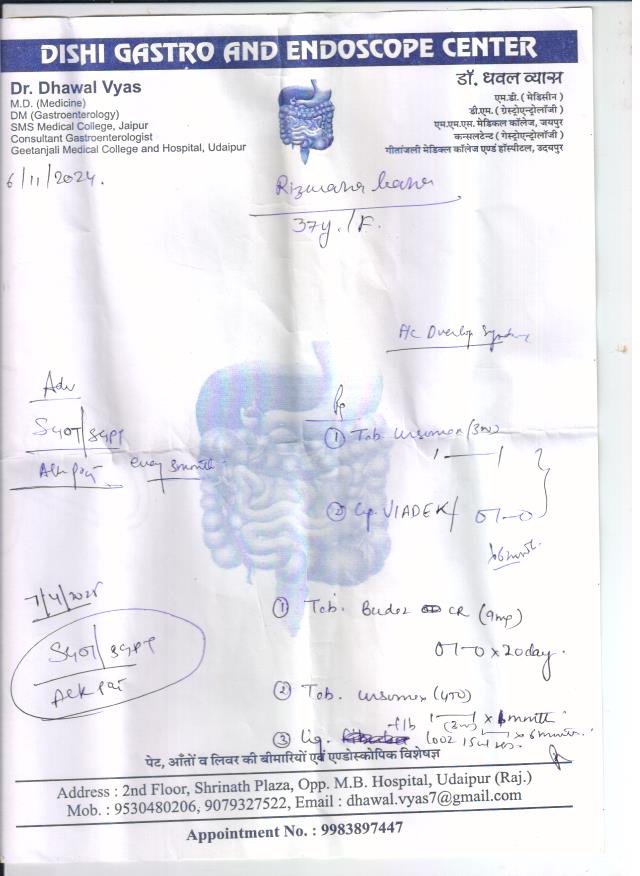 DISHI GASTRO AND ENDOSCOPE CENTER
Dr. Dhawal Vyas
M.D. (Medicine)
DM (Gastroenterology)
SMS Medical College, Jaipur
Consultant Gastroenterologist
Geetanjali Medical College and Hospital, Udaipur
डॉ. धवल व्यास
एम.डी. ( मेडिसीन )
डी.एम. ( ग्रेस्ट्रोएन्ट्रोलॉजी )
एम.एम.एस. मेडिकल कॉलेज, जयपुर
कन्सलटेन्ट ( गेस्ट्रोएन्ट्रोलॉजी )
गीतांजली मेडिकल कॉलेज एण्ड हॉस्पीटल, उदयपुर
6/11/2024.
37y./F.
Overlap Syndrome
Adv
SGOT/SGPT
every 3 month
① Tab. (300)
1 — 1
② Cp. VIADEK 0-1-0
x 6 month.
7/4/2025
SGOT/SGPT
① Tab. CR (9mg)
0-1-0 x 20 day.
② Tab. (450)
x 6 month
③ Liq. x 6 month.
पेट, आँतों व लिवर की बीमारियों एवं एण्डोस्कोपिक विशेषज्ञ
Address : 2nd Floor, Shrinath Plaza, Opp. M.B. Hospital, Udaipur (Raj.)
Mob. : 9530480206, 9079327522, Email : dhawal.vyas7@gmail.com
Appointment No. : 9983897447